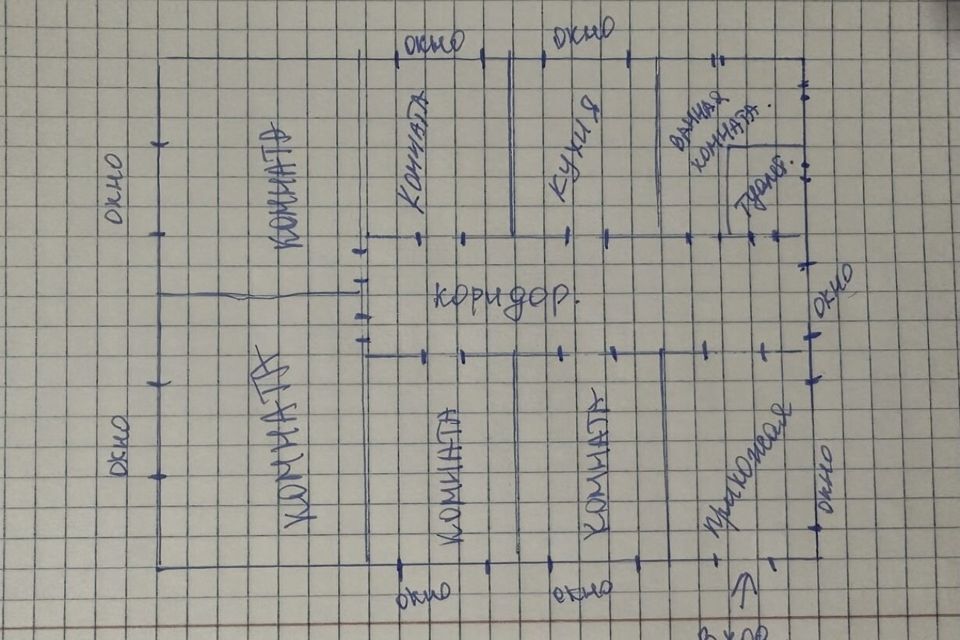 окно
окно
окно
комната
комната
кухня
ванная
комната.
туалет.
коридор.
окно
окно
комната
комната
комната
прихожая
окно
окно
окно
вход